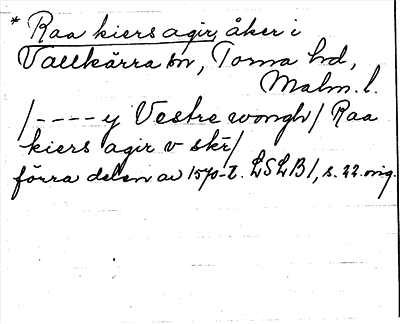 * Raa kiers agir, åker i
Vallkärra sn, Torna hd,
Malm. l.
/---- y Vestre wongh/ Raa
kiers agir v skr/
förra delen av 1570-t. LSLB1, s. 22. orig.